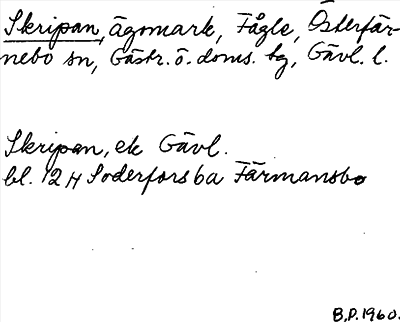 Skripan, ägomark, Fågle, Österfär-
nebo sn, Gästr. ö. doms. tg, Gävl. l.
Skripan, ek Gävl.
bl. 12 H Söderfors ba Färmansbo
B.P. 1960.